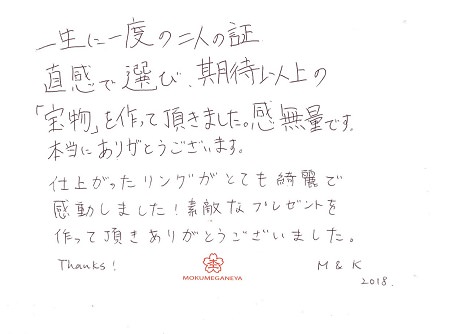 一生に一度の二人の証
直感で選び、期待以上の
「宝物」を作って頂きました。感無量です。
本当にありがとうございます。
仕上がったリングがとても綺麗で
感動しました！素敵なプレゼントを
作って頂きありがとうございました。
Thanks!
MOKUMEGANEYA
M & K
2018.